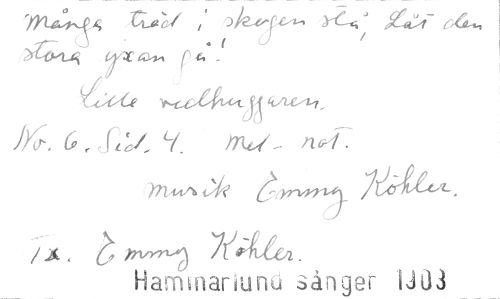 många träd i skogen stå, Låt den
stora yxan gå!
Lille vedhuggaren.
No. 6. Sid. 4. Mel - not.
musik Emmy Köhler.
Tx. Emmy Köhler.
Hammarlund sånger 1903